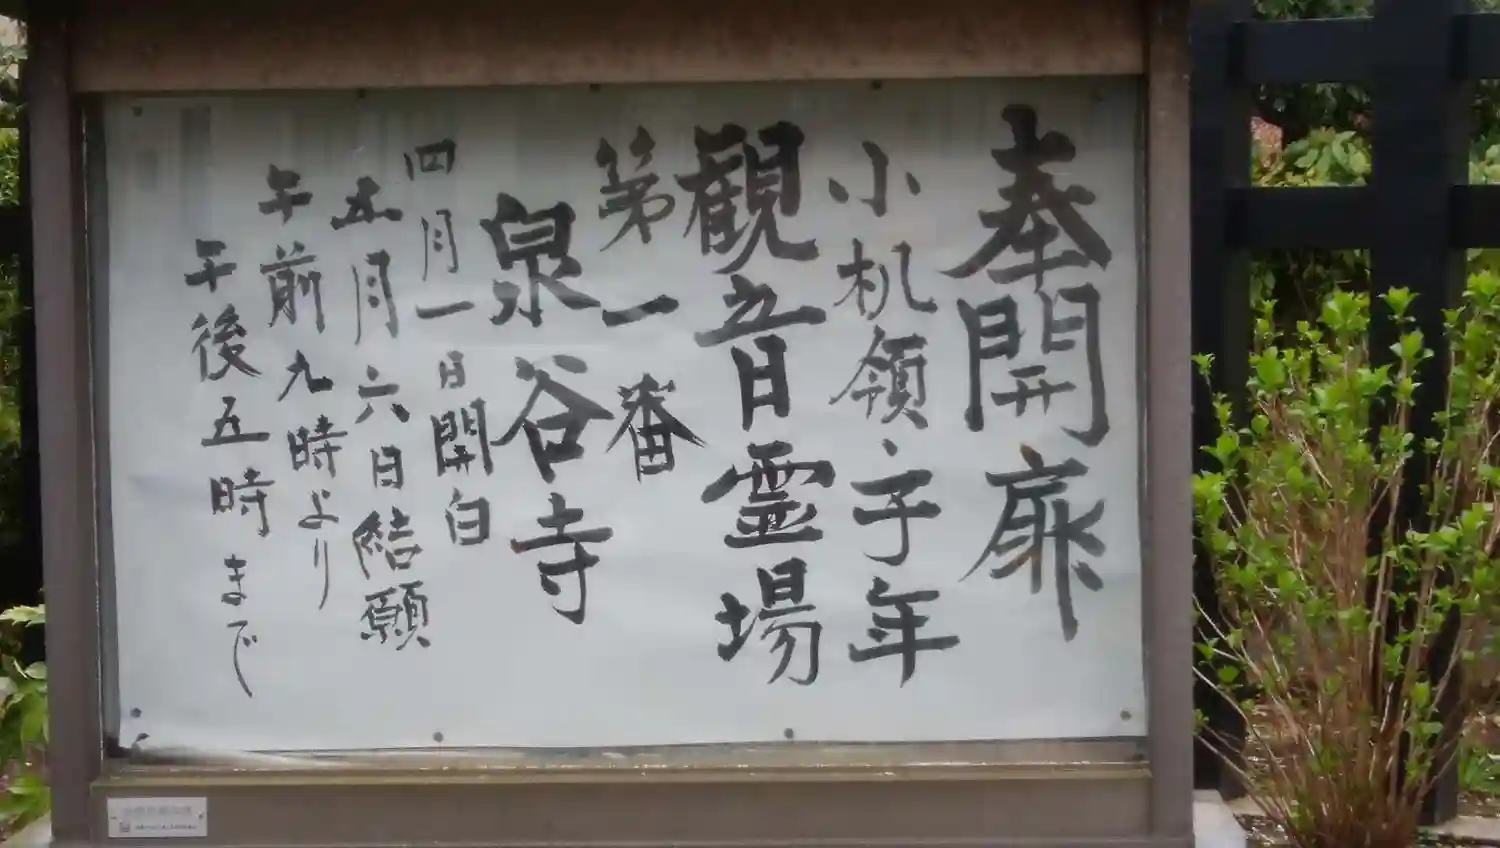 奉開扉
小机領子年
観音霊場
第一番
泉谷寺
四月一日開白
五月六日結願
午前九時より
午後五時まで